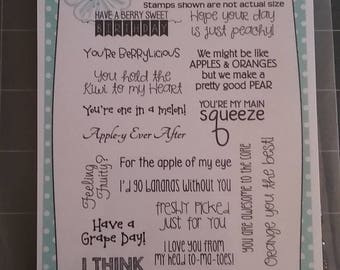 Stamps shown are not actual size
HAVE A BERRY SWEET
BIRTHDAY
Hope your day
is just peachy!
You're BeRRyLicious
We might be like
APPLES & ORANGES
but we make a
pretty good PEAR
You hold the
Kiwi to my Heart
You're one in a melon!
YOU'RE MY MAIN
squeeze
Apple-y Ever After
Feeling
Fruity?
For the apple of my eye
I'd go bananas without you
YOU ARE AWESOME TO THE CORE
Orange you the best!
freshly picked
just for you
Have a
Grape Day!
I Love you from
my head to-ma-toes!
I THINK